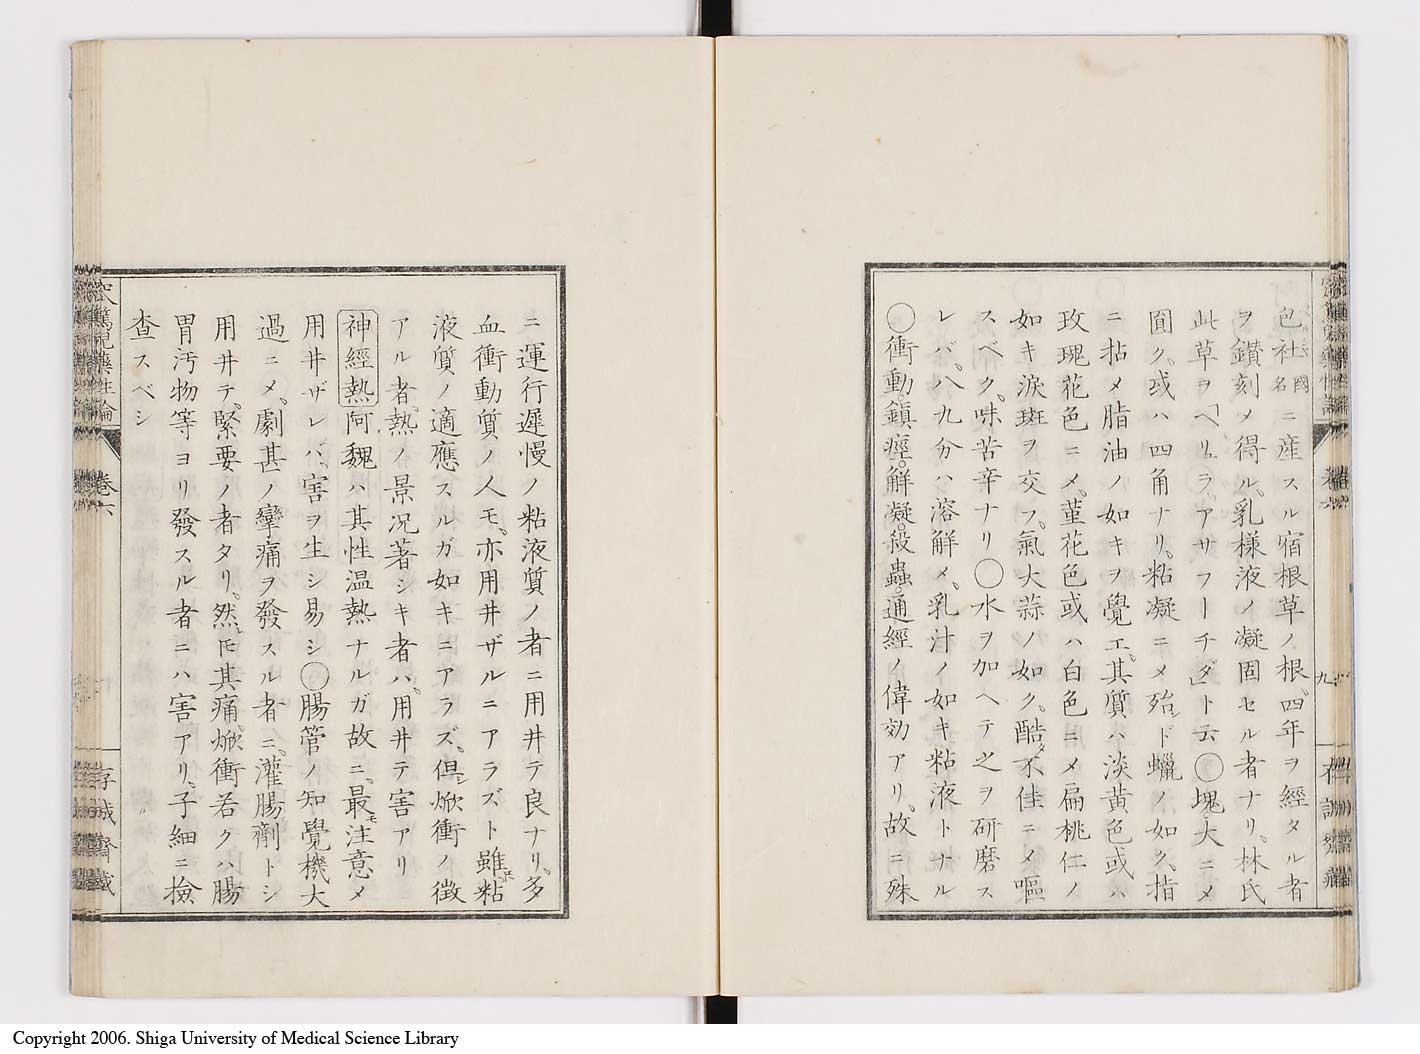 色社國名ニ産スル宿根草ノ根、四年ヲ經タル者
ヲ鑚刻メ得ル、乳様液ノ凝固セル者ナリ、林氏
此草ヲ「ヘリュラ、アサフーチダ」ト云○塊大ニメ
圓ク、或ハ四角ナリ、粘凝ニメ殆ンド蠟ノ如ク、指
ニ拈メ脂油ノ如キヲ覺エ、其質ハ淡黄色或ハ
玫瑰花色ニメ、菫花色或ハ白色ニメ扁桃仁ノ
如キ淚斑ヲ交フ、氣大蒜ノ如ク、酷タ不佳ニメ嘔
スベク、味苦辛ナリ○水ヲ加ヘテ之ヲ研磨ス
レバ、八九分ハ溶解メ、乳汁ノ如キ粘液トナル
○衝動。鎮痙。解凝。殺蟲。通經ノ偉効アリ、故ニ殊
卷六
九
ニ運行遲慢ノ粘液質ノ者ニ用井テ良ナリ、多
血衝動質ノ人モ、亦用井ザルニアラズト雖𪜈、粘
液質ノ適應スルガ如キニアラズ、但シ焮衝ノ徴
アル者、熱ノ景况著シキ者ハ、用井テ害アリ
神經熱阿魏ハ其性温熱ナルガ故ニ、最モ注意メ
用井ザレバ、害ヲ生シ易シ○腸管ノ知覺機大
過ニメ、劇甚ノ攣痛ヲ發スル者ニ、灌腸劑トシ
用井テ、緊要ノ者タリ、然レ𪜈其痛、焮衝若クハ腸
胃汚物等ヨリ發スル者ニハ害アリ、子細ニ撿
查スベシ
窊篤兒藥性論
卷六
存誠齋藏
Copyright 2006. Shiga University of Medical Science Library